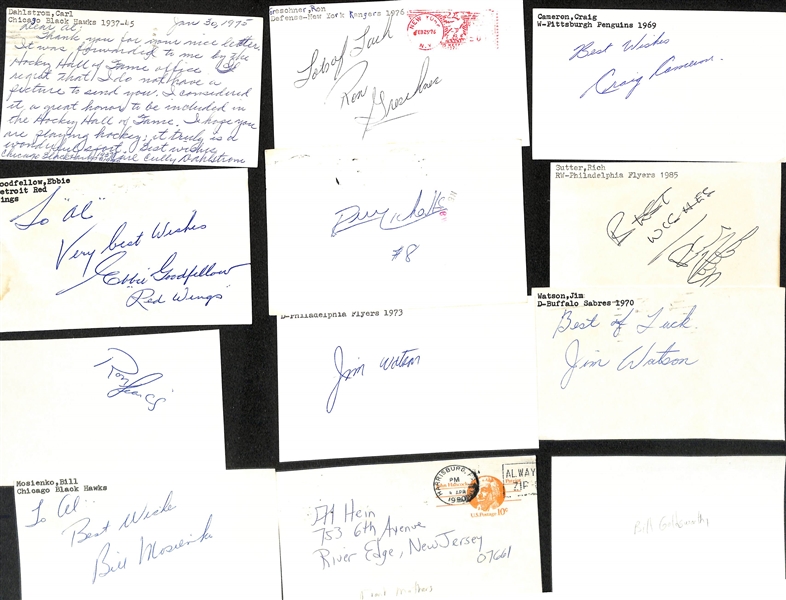 Dahlstrom, Carl
Chicago Black Hawks 1937-45
Jan 30, 1975
Dear Al:
Thank you for your nice letter.
It was forwarded to me by the
Hockey Hall of Fame office. I
regret that I do not have a
picture to send you. I considered
it a great honor to be included in
the Hockey Hall of Fame. I hope you
are playing hockey, it truly is a
wonderful sport. Best wishes
Cully Dahlstrom
Groschner, Ron
Defense-New York Rangers 1976
NEW YORK
N.Y.
Lots of Luck
Ron
Greschner
Cameron, Craig
W-Pittsburgh Penguins 1969
Best Wishes
Craig Cameron
Goodfellow, Ebbie
Detroit Red
Wings
To "Al"
Very best Wishes
Ebbie Goodfellow
"Red Wings"
#8
Sutter, Rich
RW-Philadelphia Flyers 1985
BEST
WISHES
D-Philadelphia Flyers 1973
Jim Watson
Watson, Jim
D-Buffalo Sabres 1970
Best of Luck
Jim Watson
Ron
Francis
Mosienko, Bill
Chicago Black Hawks
To Al
Best Wishes
Bill Mosienko
HARRISBURG, PA
PM
1980
ALWAY
ZIP
US Postage 10¢
753 6th Avenue
River Edge, New Jersey
07661
Bill Goldsworthy